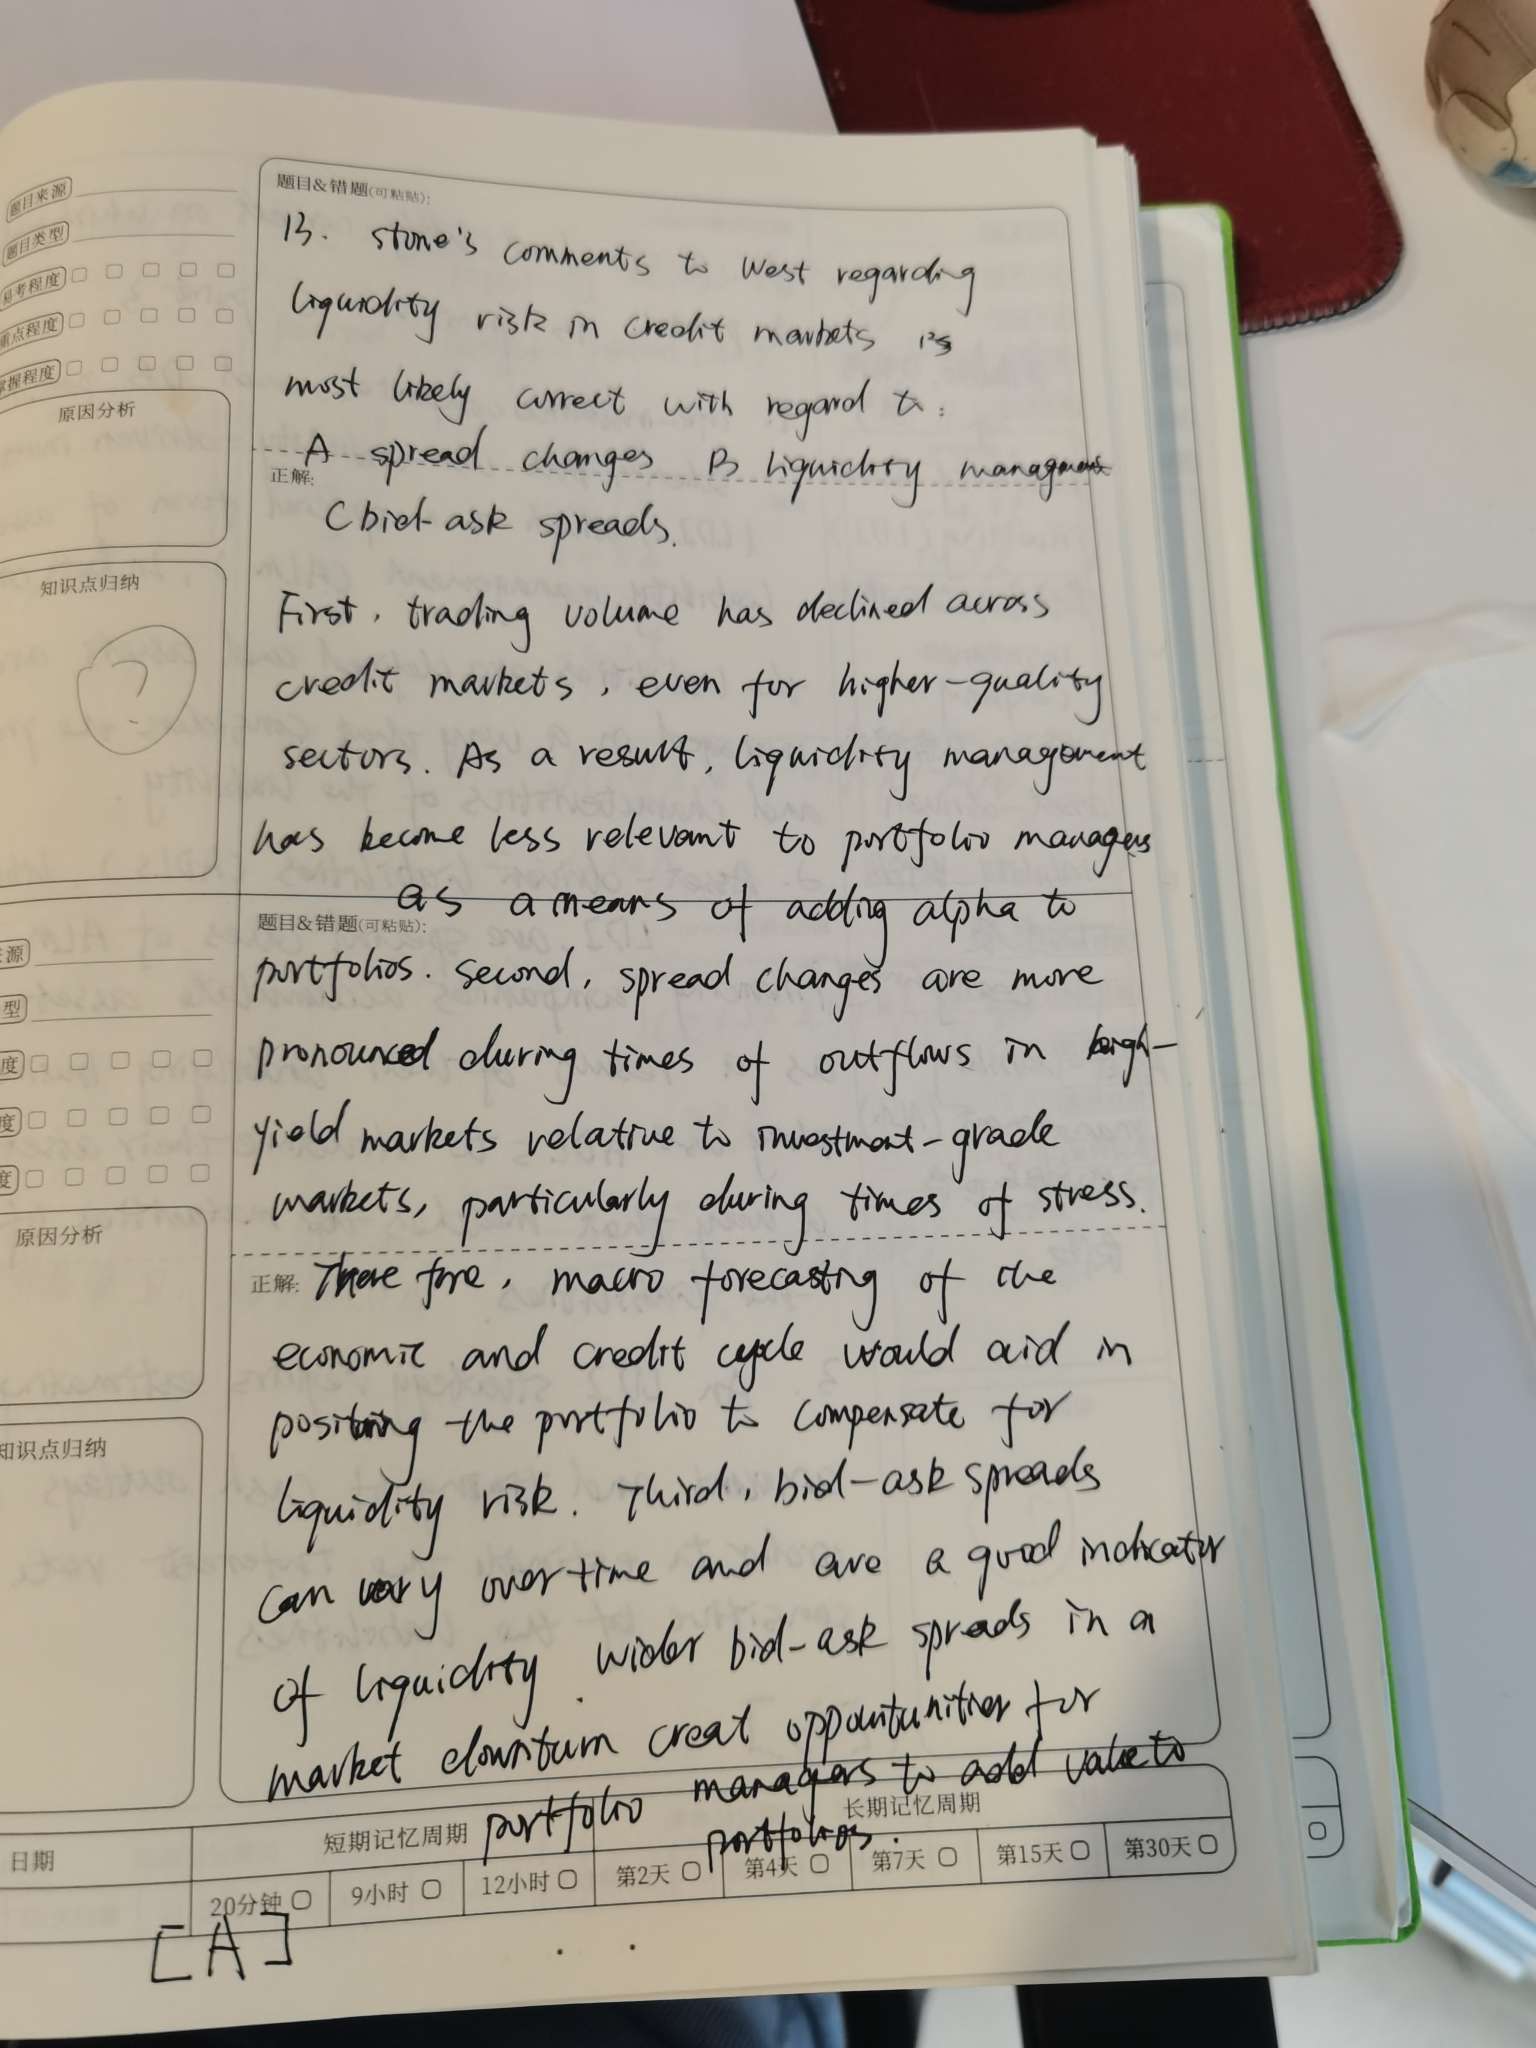 题目来源
题目类型
易考程度
重点程度
掌握程度
原因分析
知识点归纳
?
题目&错题(可粘贴):
13. Stone's comments to West regarding
liquidity risk in credit markets is
most likely correct with regard to:
A spread changes B liquidity managment
正解:
C bid-ask spreads.
First, trading volume has declined across
credit markets, even for higher-quality
sectors. As a result, liquidity management
has become less relevant to portfolio managers
as a means of adding alpha to
题目&错题(可粘贴):
portfolios. Second, spread changes are more
pronounced during times of outflows in high-
yield markets relative to investment-grade
markets, particularly during times of stress.
正解: Therefore, macro forecasting of the
economic and credit cycle would aid in
positioning the portfolio to compensate for
liquidity risk. Third, bid-ask spreads
can vary over time and are a good indicator
of liquidity. wider bid-ask spreads in a
market downturn creat opportunities for
portfolio managers to add value to
portfolios.
来源
型
度
度
度
原因分析
知识点归纳
日期
短期记忆周期
长期记忆周期
20分钟
9小时
12小时
第2天
第4天
第7天
第15天
第30天
[A]